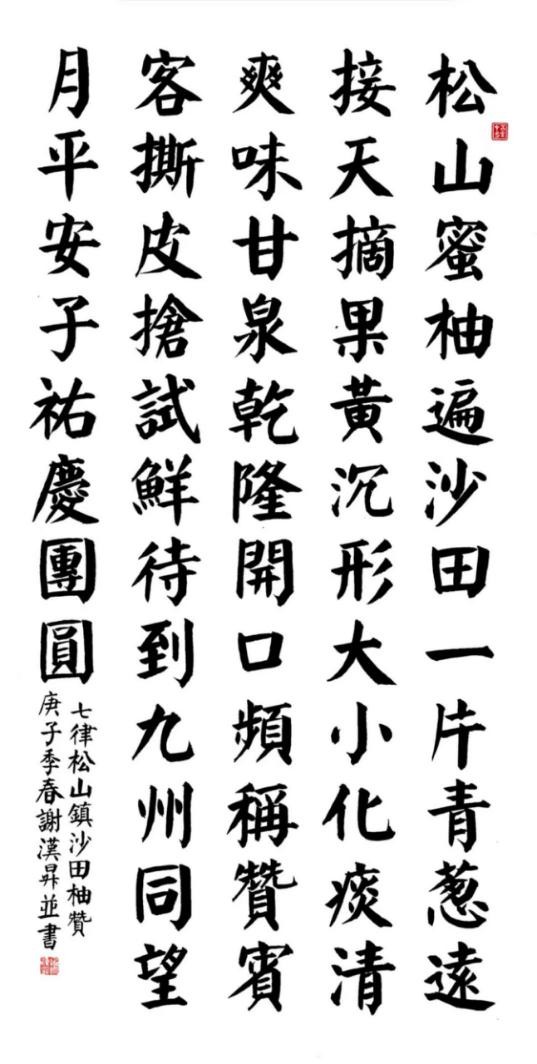 松山蜜柚遍沙田一片青蔥遠
接天摘果黃沉形大小化痰清
爽味甘泉乾隆開口頻稱贊賓
客撕皮搶試鮮待到九州同望
月平安子祐慶團圓
七律松山鎮沙田柚贊
庚子季春謝漢昇並書